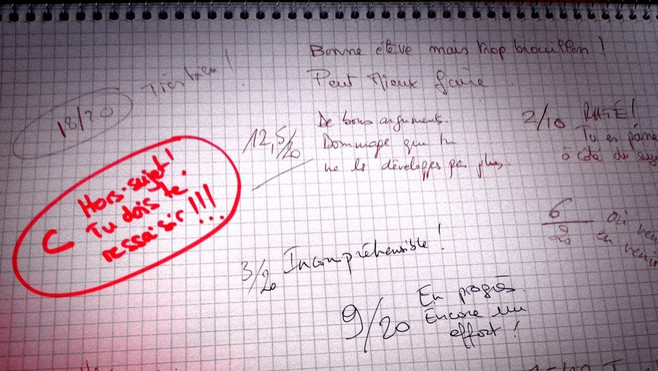 Bonne élève mais trop brouillon !
Peut Mieux faire
Très bien !
18/20
12,5/20
De bons arguments.
Dommage que tu
ne les développes pas plus,
2/10 RATÉ !
Tu es
à côté du
C Hors-sujet !
Tu dois te
ressaisir !!!
6/20
Où
en venir
3/20 Incompréhensible !
9/20
En progrès
Encore un
effort !